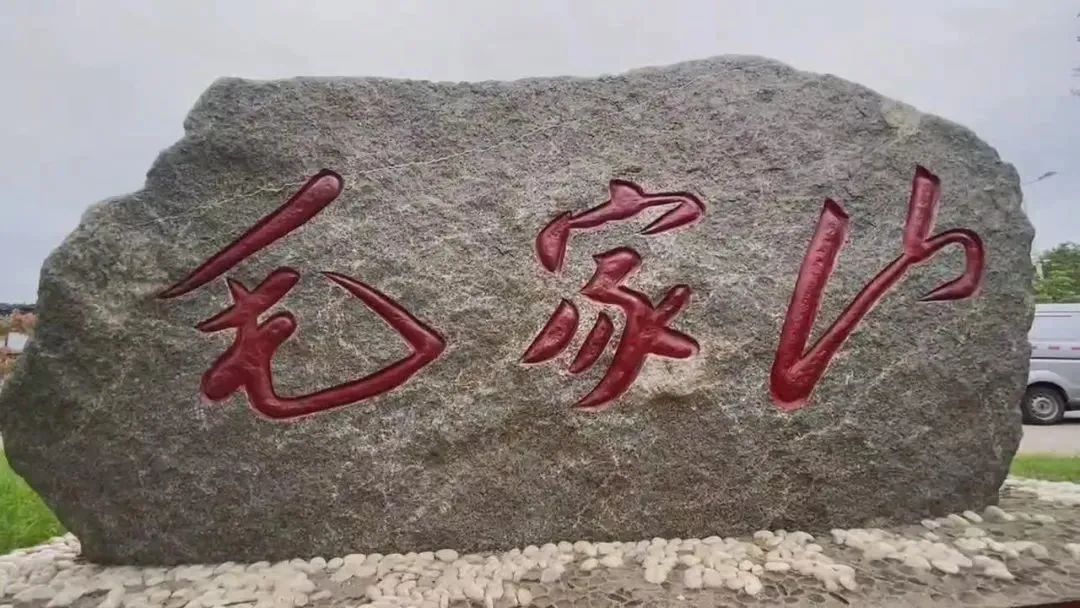 毛家山